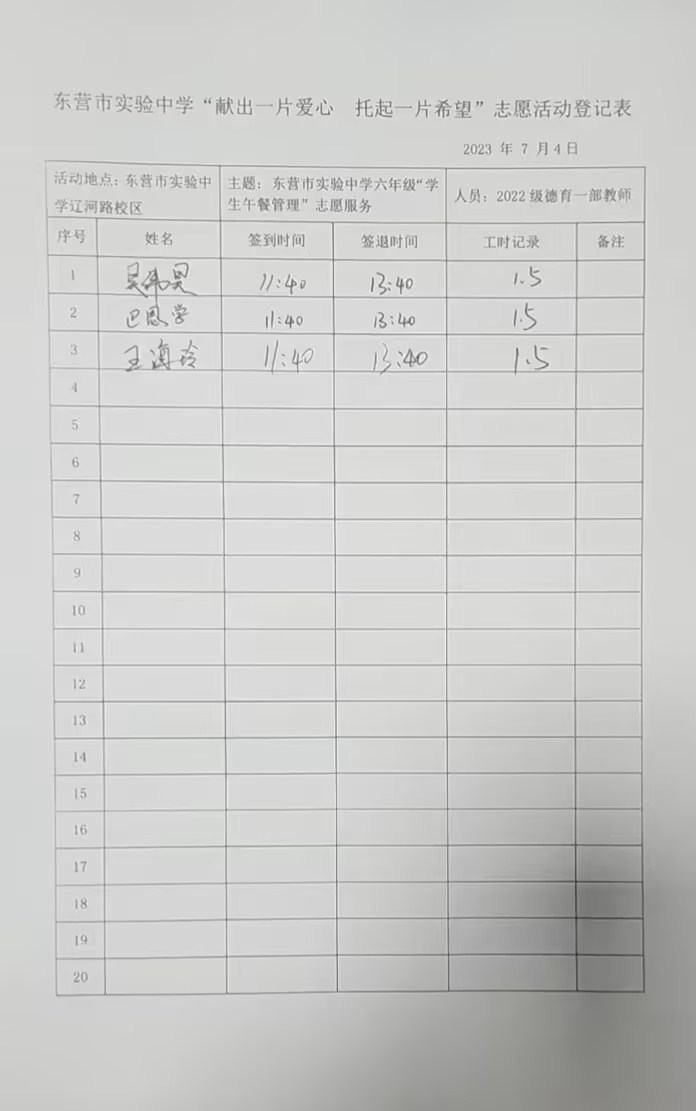 东营市实验中学“献出一片爱心 托起一片希望”志愿活动登记表
2023 年 7 月 4 日
活动地点：东营市实验中
学辽河路校区
主题：东营市实验中学六年级“学
生午餐管理”志愿服务
人员：2022 级德育一部教师
序号 姓名 签到时间 签退时间 工时记录 备注
1 吴伟昊 11:40 13:40 1.5
2 巴恩学 11:40 13:40 1.5
3 王海玲 11:40 13:40 1.5
4
5
6
7
8
9
10
11
12
13
14
15
16
17
18
19
20